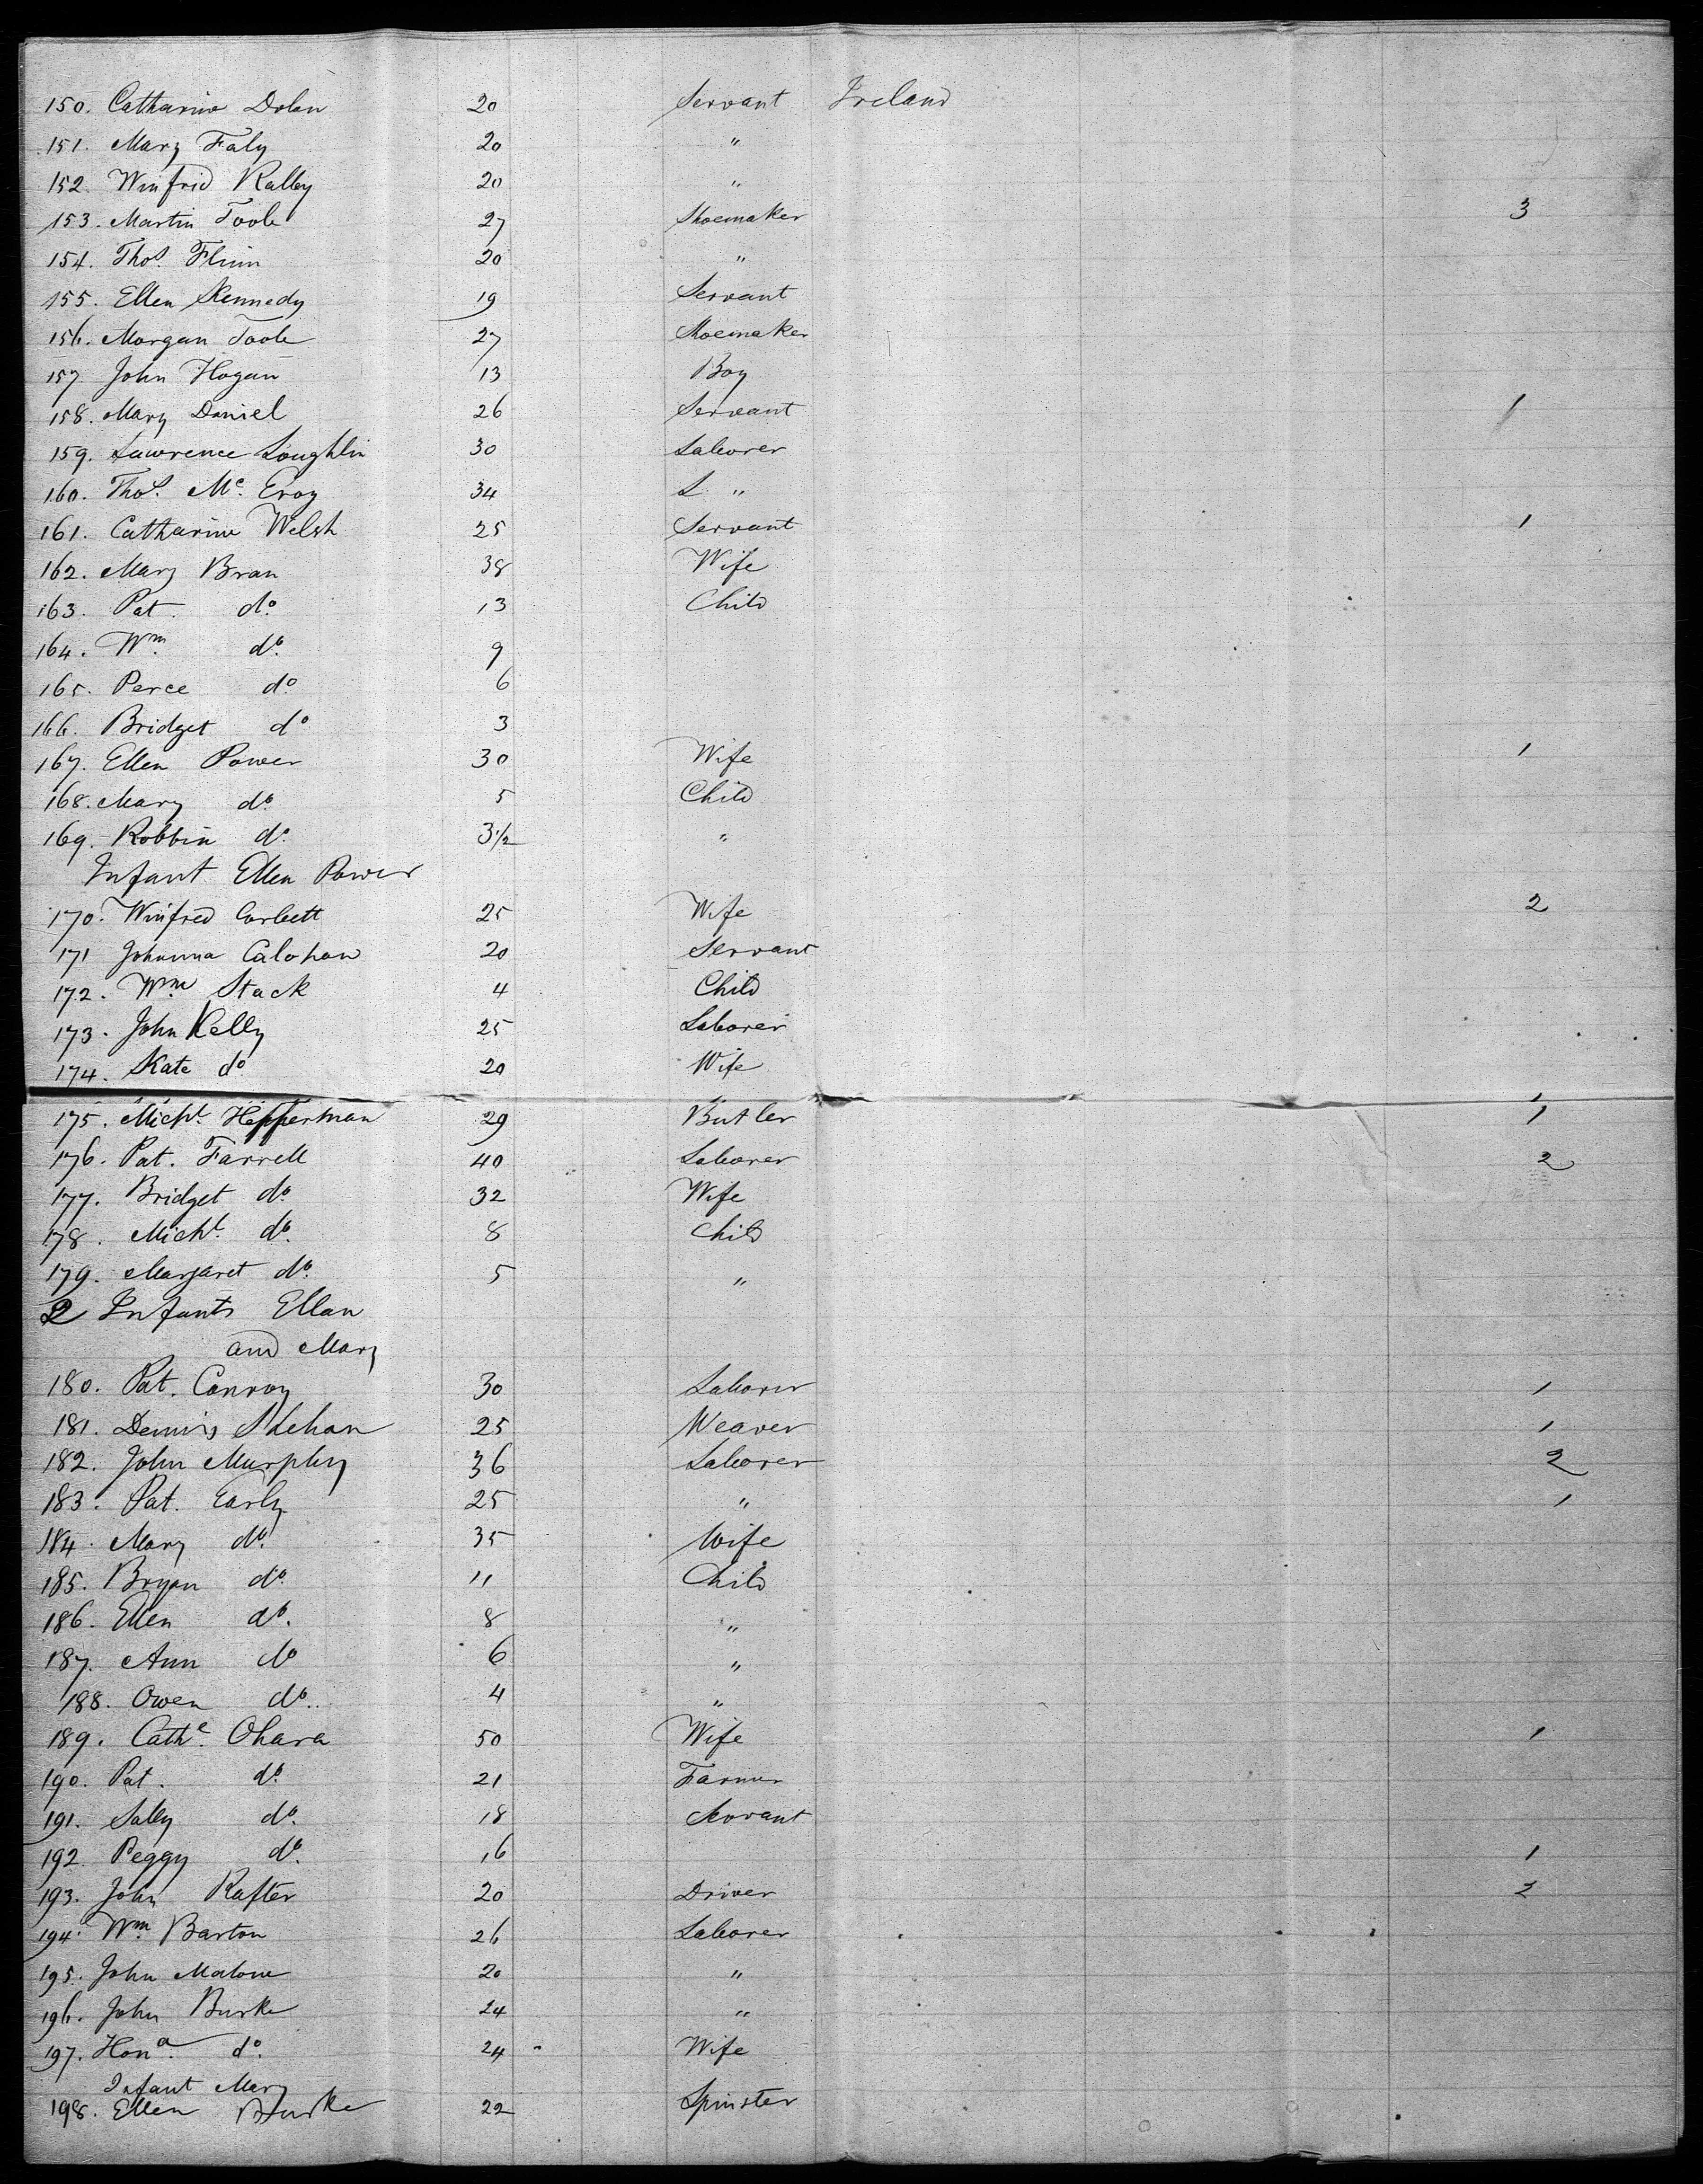 150. Catharine Dolan 20 Servant Ireland
151. Mary Faly 20 "
152. Winfrid Kalley 20 "
153. Martin Toole 27 Shoemaker 3
154. Thos. Flinn 20 "
155. Ellen Kennedy 19 Servant
156. Morgan Toole 27 Shoemaker
157 John Hogan 13 Boy
158. Mary Daniel 26 Servant 1
159. Lawrence Loughlin 30 Laborer
160. Thos. Mc. Evoy 34 L "
161. Catharine Welsh 25 Servant 1
162. Mary Bran 38 Wife
163. Pat. do. 13 Child
164. Wm. do. 9
165. Perce do. 6
166. Bridget do 3
167. Ellen Power 30 Wife 1
168. Mary do. 5 Child
169. Robbin do. 3 1/2 "
Infant Ellen Power
170. Winfred Corbett 25 Wife 2
171 Johanna Calohan 20 Servant
172. Wm. Stack 4 Child
173. John Kelly 25 Laborer
174. Kate do 20 Wife
175. Michl. Hefferman 29 Butler 1
176. Pat. Farrell 40 Laborer 2
177. Bridget do. 32 Wife
178. Michl. do. 8 Child
179. Margaret do. 5 "
2 Infants Ellan
and Mary
180. Pat. Conroy 30 Laborer 1
181. Dennis Shehan 25 Weaver 1
182. John Murphy 36 Laborer 2
183. Pat. Early 25 " 1
184. Mary do. 35 Wife
185. Bryan do. 11 Child
186. Ellen do. 8 "
187. Ann do 6 "
188. Owen do.. 4 "
189. Cathe. Ohara 50 Wife 1
190. Pat. do. 21 Farmer
191. Sally do. 18 Servant
192. Peggy do. 16 1
193. John Rafter 20 Driver 2
194. Wm. Barton 26 Laborer
195. John Malone 20 "
196. John Burke 24 "
197. Hona. do. 24 Wife
Infant Mary
198. Ellen Burke 22 Spinster